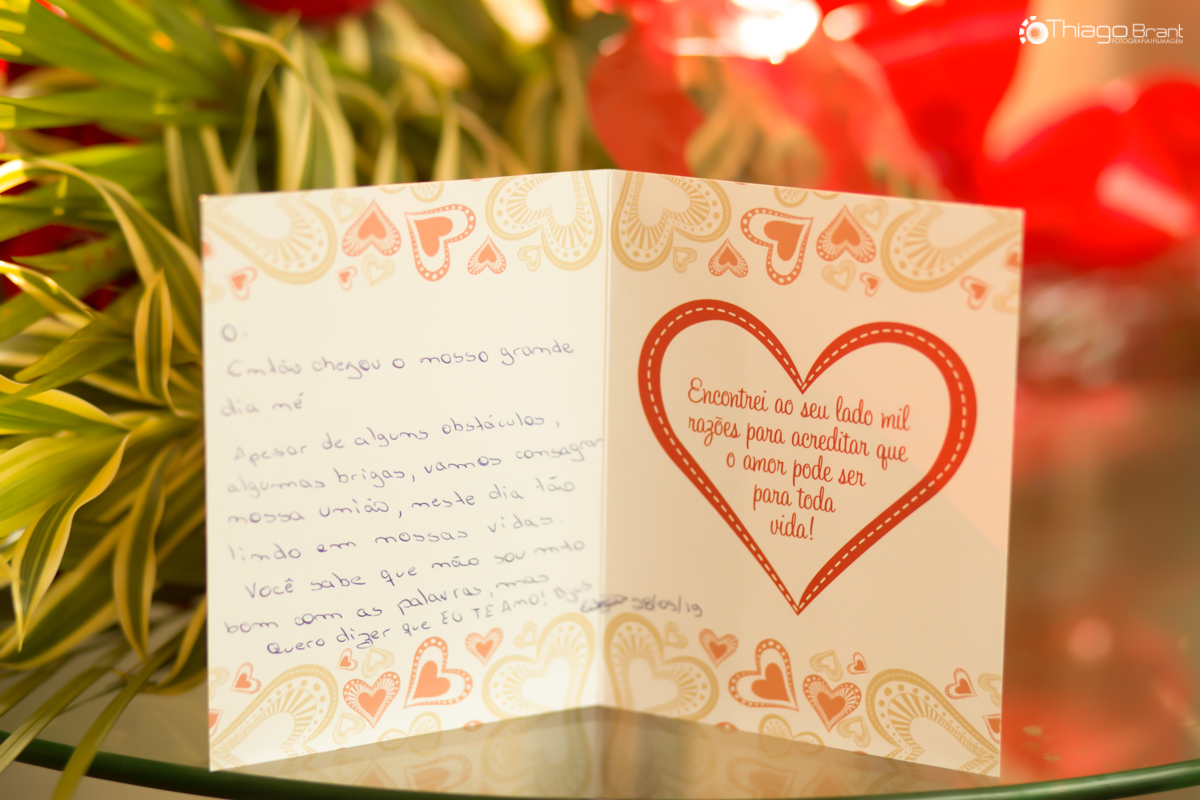 Thiago Brant
FOTOGRAFIA|FILMAGEM
O.
Então chegou o nosso grande
dia né
Apesar de alguns obstáculos,
algumas brigas, vamos consagrar
nossa união, neste dia tão
lindo em nossas vidas.
Você sabe que não sou mto
bom com as palavras, mas
Quero dizer que EU TE AMO! Bjus
/05/19
Encontrei ao seu lado mil
razões para acreditar que
o amor pode ser
para toda
vida!